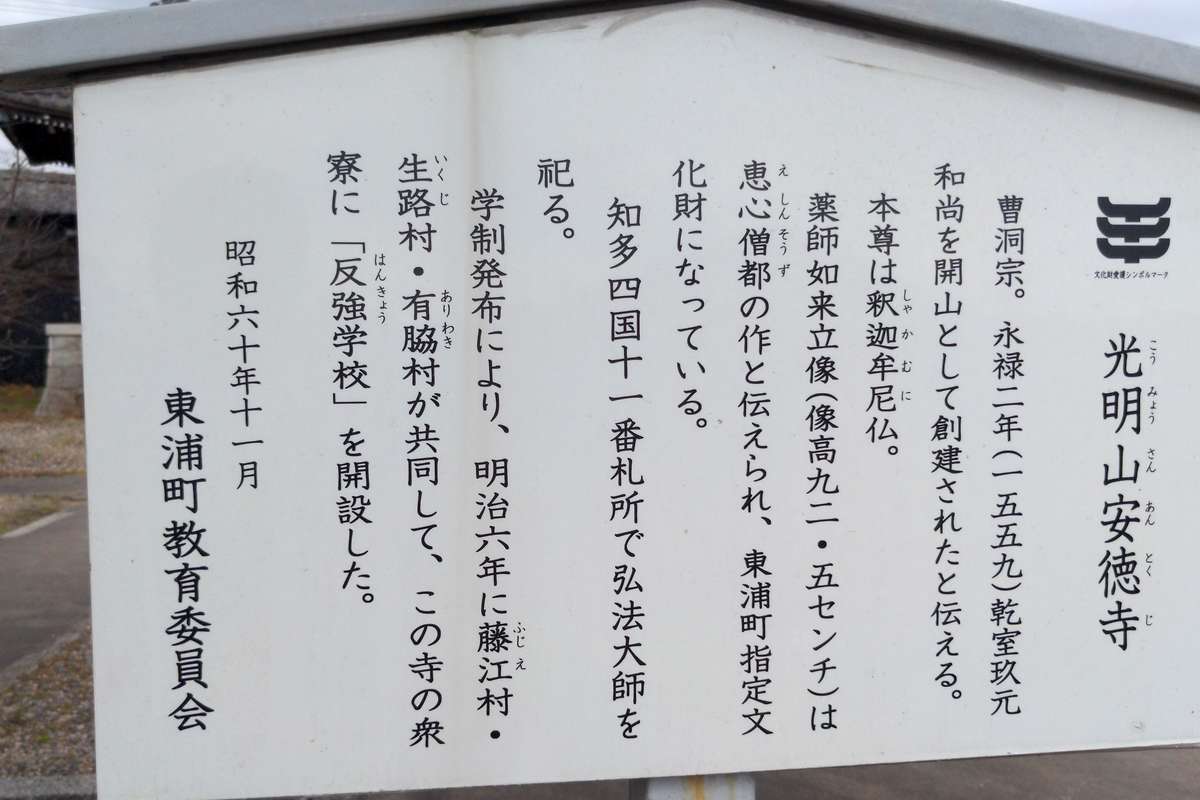 文化財愛護シンボルマーク
光明山安徳寺
こうみょうさんあんとくじ
曹洞宗。永禄二年(一五五九)乾室玖元
和尚を開山として創建されたと伝える。
本尊は釈迦牟尼仏。
しゃかむに
薬師如来立像(像高九二・五センチ)は
恵心僧都の作と伝えられ、東浦町指定文
えしんそうず
化財になっている。
知多四国十一番札所で弘法大師を
祀る。
学制発布により、明治六年に藤江村・
ふじえ
生路村・有脇村が共同して、この寺の衆
いくじ
ありわき
寮に「反強学校」を開設した。
はんきょう
昭和六十年十一月
東浦町教育委員会